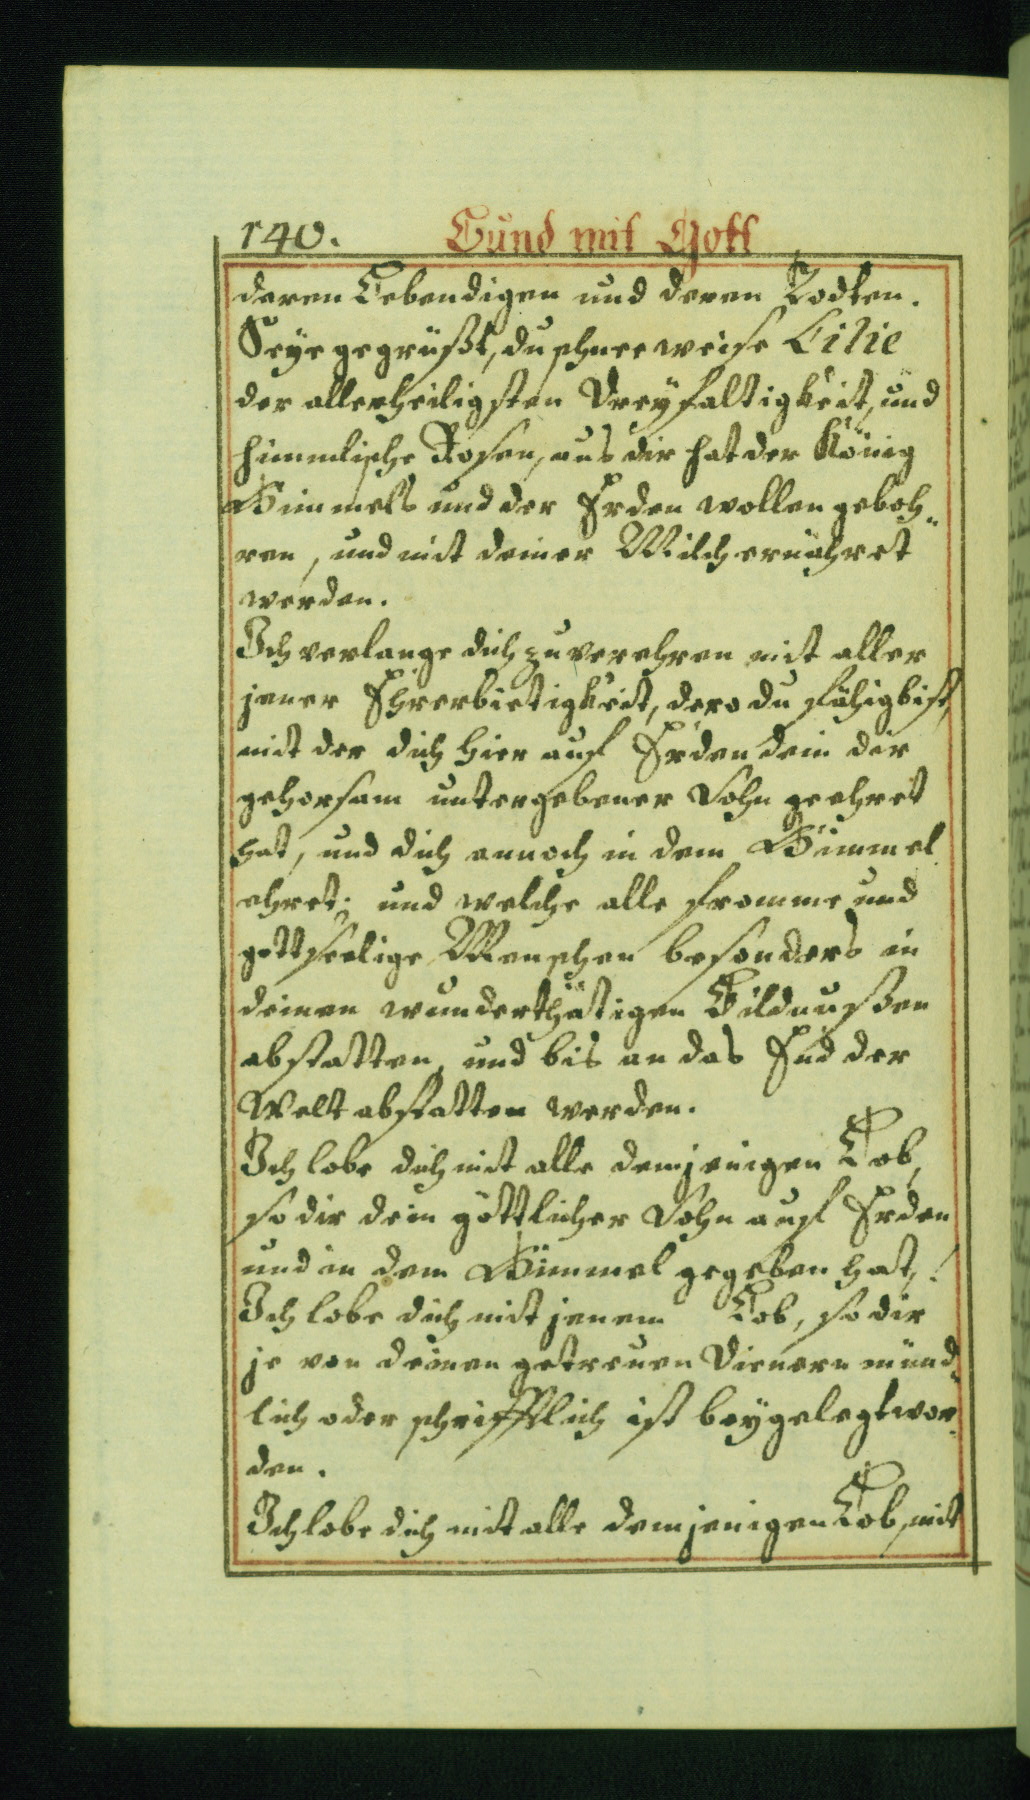 140. Bund mit Gott
deren Lebendigen und deren Todten.
Seye gegrüßt, du schneeweise Lilie
der allerheiligsten Dreyfaltigkeit, und
himmlische Rosen, aus dir hat der König
Himmels und der Erden wollen geboh„
ren, und mit deiner Milch ernähret
werden.
Ich verlange dich zu verehren mit aller
jener Ehrerbietigkeit, dero du fähig bist,
mit der dich hier auf Erden dein dir
gehorsam untergebener Sohn geehret
hat, und dich annoch in dem Himmel
ehret; und welche alle fromme und
gottseelige Menschen besonders in
deinen wunderthätigen Bildnußen
abstatten, und bis an das End der
Welt abstatten werden.
Ich lobe dich mit alle demjenigen Lob,
so dir dein göttlicher Sohn auf Erden
und in dem Himmel gegeben hat,!
Ich lobe dich mit jenem Lob, so dir
je von deinen getreuen Dienern münd„
lich oder schrifftlich ist beygelegt wor„
den.
Ich lobe dich mit alle demjenigen Lob, mit